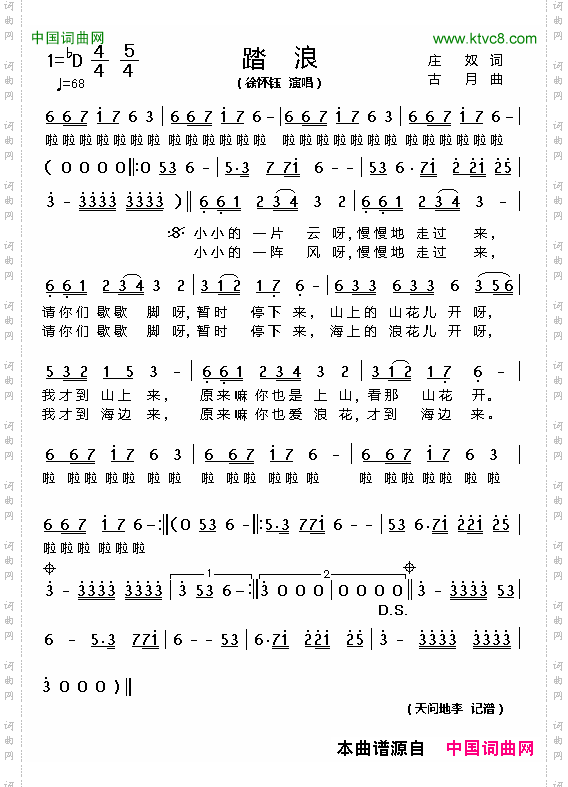 中国词曲网
www.ktvc8.com
1=♭D 4/4 5/4
踏 浪
庄 奴 词
♩=68
(徐怀钰 演唱)
古 月 曲
6 6 7 i 7 6 3 | 6 6 7 i 7 6 - | 6 6 7 i 7 6 3 | 6 6 7 i 7 6 - |
啦啦啦啦啦啦 啦啦啦啦啦啦 啦啦啦啦啦啦 啦啦啦啦啦啦
( 0 0 0 0 ‖: 0 53 6 - | 5·3 77i 6 - | 53 6·7i 2 2i 25 |
3 - 3333 3333 )‖ 6 6 1 2 34 3 2 | 6 6 1 2 34 3 - |
𝄋 小小的 一片 云 呀,慢慢地 走过 来,
小小的 一阵 风 呀,慢慢地 走过 来,
6 6 1 2 34 3 2 | 3 1 2 1 7 6 - | 6 3 3 6 3 3 6 3 5 6 |
请你们 歇歇 脚 呀,暂时 停下 来, 山上的 山花儿 开 呀,
请你们 歇歇 脚 呀,暂时 停下 来, 海上的 浪花儿 开 呀,
5 3 2 1 5 3 - | 6 6 1 2 3 4 3 2 | 3 1 2 1 7 6 - |
我才到 山上 来, 原来嘛你也是 上 山,看那 山花 开。
我才到 海边 来, 原来嘛你也爱 浪 花,才到 海边 来。
6 6 7 i 7 6 3 | 6 6 7 i 7 6 - | 6 6 7 i 7 6 3 |
啦 啦啦 啦啦啦 啦 啦啦 啦啦啦 啦 啦啦 啦啦啦
6 6 7 i 7 6 - :‖ (0 53 6 - ‖: 5·3 77i 6 - | 53 6·7i 22i 25 |
啦啦啦 啦啦啦
𝄌 1 2 𝄌
3 - 3333 3333 | 3 53 6 - :‖ 3 0 0 0 | 0 0 0 0 ‖ 3 - 3333 53 |
D.S.
6 - 5·3 77i | 6 - - 53 | 6·7i 22i 25 | 3 - 3333 3333 |
3 0 0 0 )‖
(天问地李 记谱)
本曲谱源自 中国词曲网
词曲网